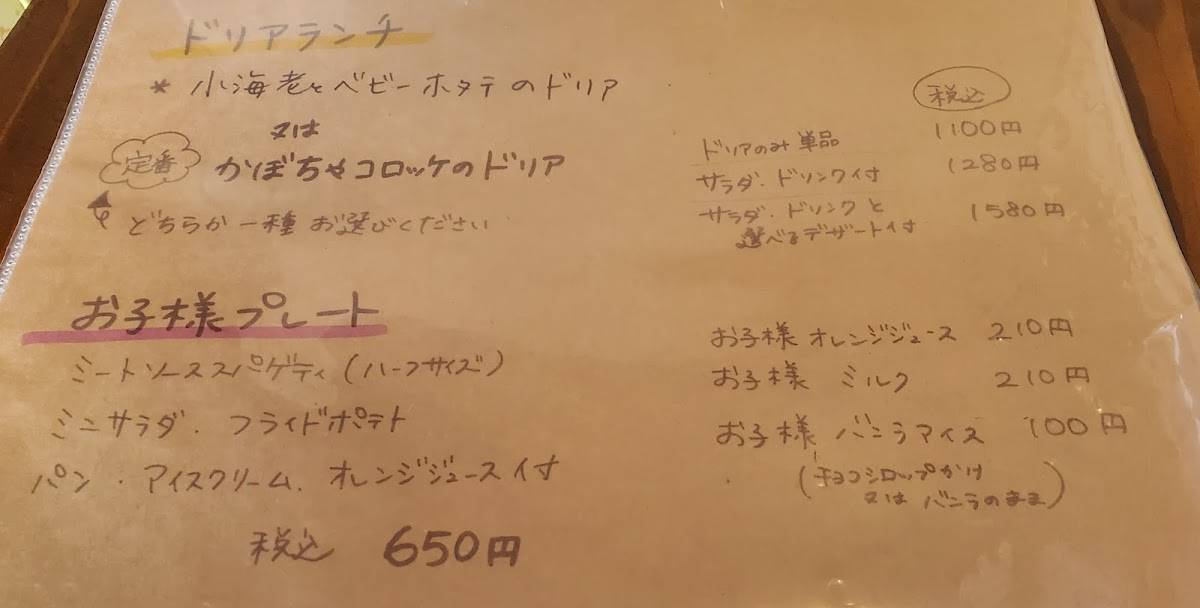 ドリアランチ
* 小海老とベビーホタテのドリア
又は
定番 かぼちゃコロッケのドリア
どちらか一種お選びください
税込
ドリアのみ単品 1100円
サラダ・ドリンク付 1280円
サラダ・ドリンクと 1580円
選べるデザート付
お子様プレート
ミートソーススパゲティ(ハーフサイズ)
ミニサラダ・フライドポテト
パン・アイスクリーム、オレンジジュース付
税込 650円
お子様オレンジジュース 210円
お子様ミルク 210円
お子様バニラアイス 100円
(チョコシロップかけ
又はバニラのまま)